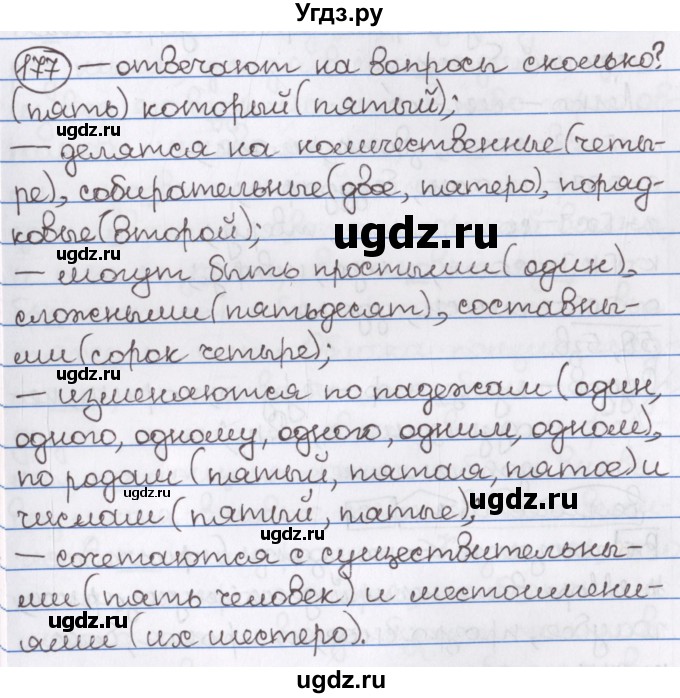 Угдз.ру
177 – отвечают на вопросы сколько?
(пять) который (пятый);
ugdz.ru
– делятся на количественные (четы-
ре), собирательные (двое, пятеро), поряд-
ковые (второй);
ugdz.ru
ugdz.ru
– могут быть простыми (один),
сложными (пятьдесят), составны-
ми (сорок четыре);
ugdz.ru
– изменяются по падежам (один,
одного, одному, одного, одним, одном),
по родам (пятый, пятая, пятое) и
ugdz.ru
ugdz.ru
числам (пятый, пятые),
– сочетаются с существительны-
ми (пять человек) и местоимени-
ugdz.ru
ями (их шестеро).
ugdz.ru